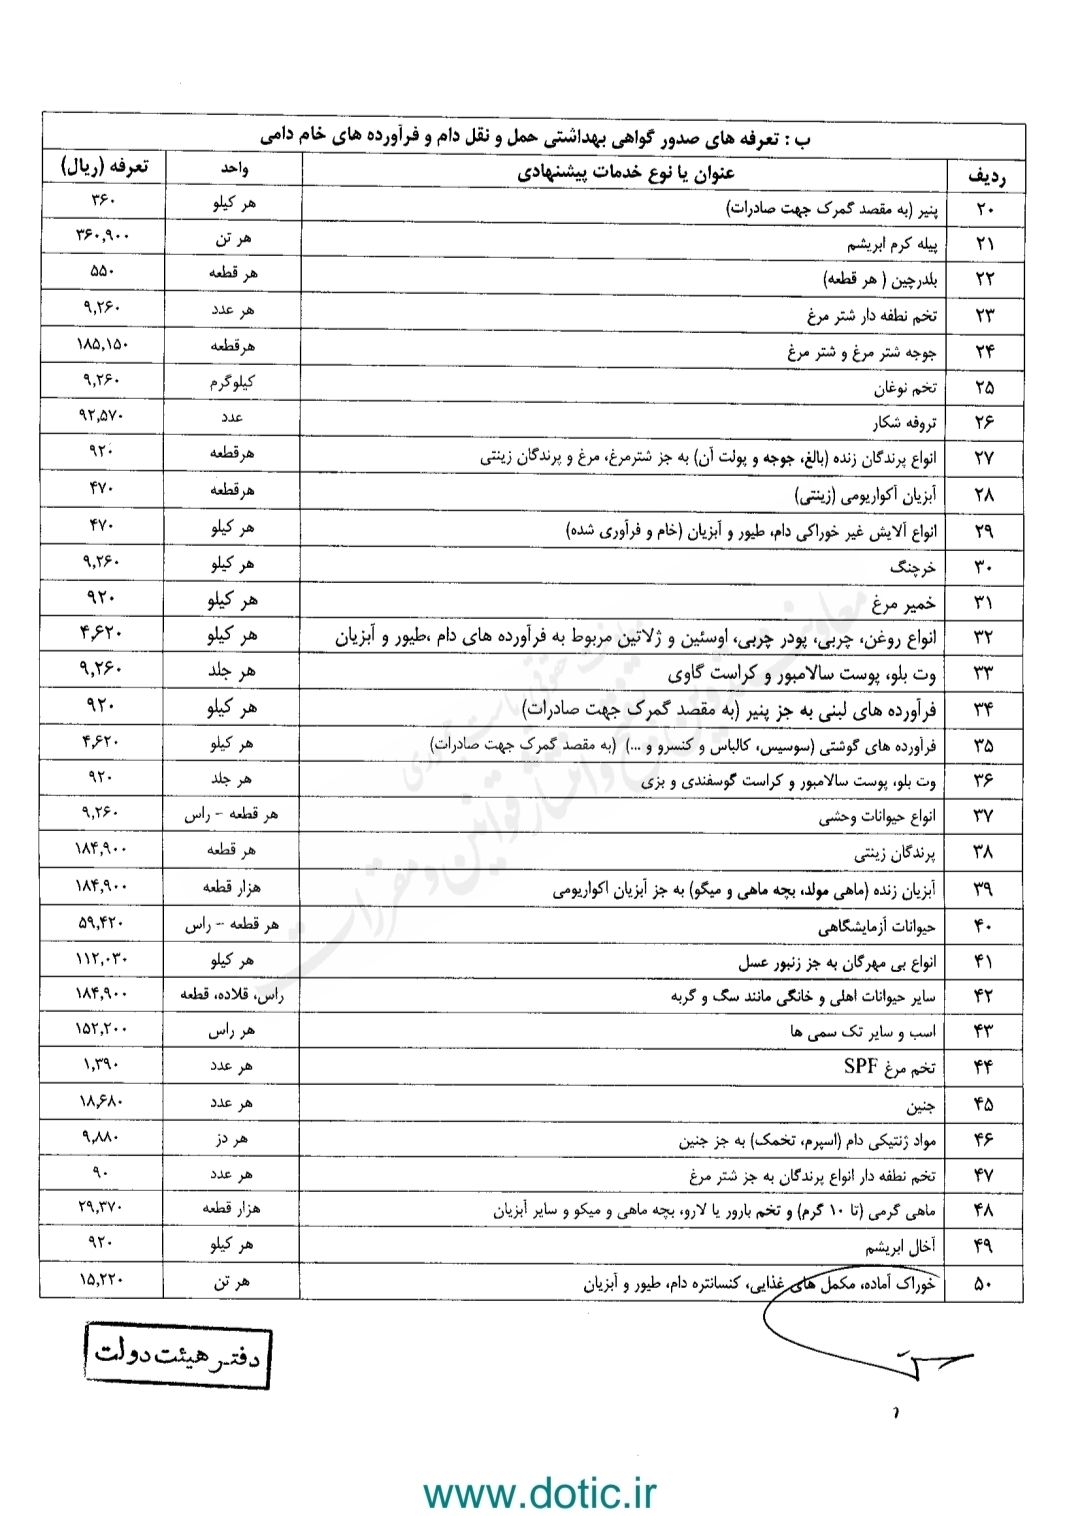 ب : تعرفه های صدور گواهی بهداشتی حمل و نقل دام و فرآورده های خام دامی
ردیف عنوان یا نوع خدمات پیشنهادی واحد تعرفه (ریال)
۲۰ پنیر (به مقصد گمرک جهت صادرات) هر کیلو ۳۶۰
۲۱ پیله کرم ابریشم هر تن ۳۶۰,۹۰۰
۲۲ بلدرچین ( هر قطعه) هر قطعه ۵۵۰
۲۳ تخم نطفه دار شتر مرغ هر عدد ۹,۲۶۰
۲۴ جوجه شتر مرغ و شتر مرغ هرقطعه ۱۸۵,۱۵۰
۲۵ تخم نوغان کیلوگرم ۹,۲۶۰
۲۶ تروفه شکار عدد ۹۲,۵۷۰
۲۷ انواع پرندگان زنده (بالغ، جوجه و پولت آن) به جز شترمرغ، مرغ و پرندگان زینتی هرقطعه ۹۲۰
۲۸ آبزیان آکواریومی (زینتی) هرقطعه ۴۷۰
۲۹ انواع آلایش غیر خوراکی دام، طیور و آبزیان (خام و فرآوری شده) هر کیلو ۴۷۰
۳۰ خرچنگ هر کیلو ۹,۲۶۰
۳۱ خمیر مرغ هر کیلو ۹۲۰
۳۲ انواع روغن، چربی، پودر چربی، اوسئین و ژلاتین مربوط به فرآورده های دام ،طیور و آبزیان هر کیلو ۴,۶۲۰
۳۳ وت بلو، پوست سالامبور و کراست گاوی هر جلد ۹,۲۶۰
۳۴ فرآورده های لبنی به جز پنیر (به مقصد گمرک جهت صادرات) هر کیلو ۹۲۰
۳۵ فرآورده های گوشتی (سوسیس، کالباس و کنسرو و ...) (به مقصد گمرک جهت صادرات) هر کیلو ۴,۶۲۰
۳۶ وت بلو، پوست سالامبور و کراست گوسفندی و بزی هر جلد ۹۲۰
۳۷ انواع حیوانات وحشی هر قطعه – راس ۹,۲۶۰
۳۸ پرندگان زینتی هر قطعه ۱۸۴,۹۰۰
۳۹ آبزیان زنده (ماهی مولد، بچه ماهی و میگو) به جز آبزیان اکواریومی هزار قطعه ۱۸۴,۹۰۰
۴۰ حیوانات آزمایشگاهی هر قطعه – راس ۵۹,۴۲۰
۴۱ انواع بی مهرگان به جز زنبور عسل هر کیلو ۱۱۲,۰۳۰
۴۲ سایر حیوانات اهلی و خانگی مانند سگ و گربه راس، قلاده، قطعه ۱۸۴,۹۰۰
۴۳ اسب و سایر تک سمی ها هر راس ۱۵۲,۲۰۰
۴۴ تخم مرغ SPF هر عدد ۱,۳۹۰
۴۵ جنین هر عدد ۱۸,۶۸۰
۴۶ مواد ژنتیکی دام (اسپرم، تخمک) به جز جنین هر دز ۹,۸۸۰
۴۷ تخم نطفه دار انواع پرندگان به جز شتر مرغ هر عدد ۹۰
۴۸ ماهی گرمی (تا ۱۰ گرم) و تخم بارور یا لارو، بچه ماهی و میکو و سایر آبزیان هزار قطعه ۲۹,۳۷۰
۴۹ آخال ابریشم هر کیلو ۹۲۰
۵۰ خوراک آماده، مکمل های غذایی، کنسانتره دام، طیور و آبزیان هر تن ۱۵,۲۲۰
دفتر هیئت دولت
www.dotic.ir